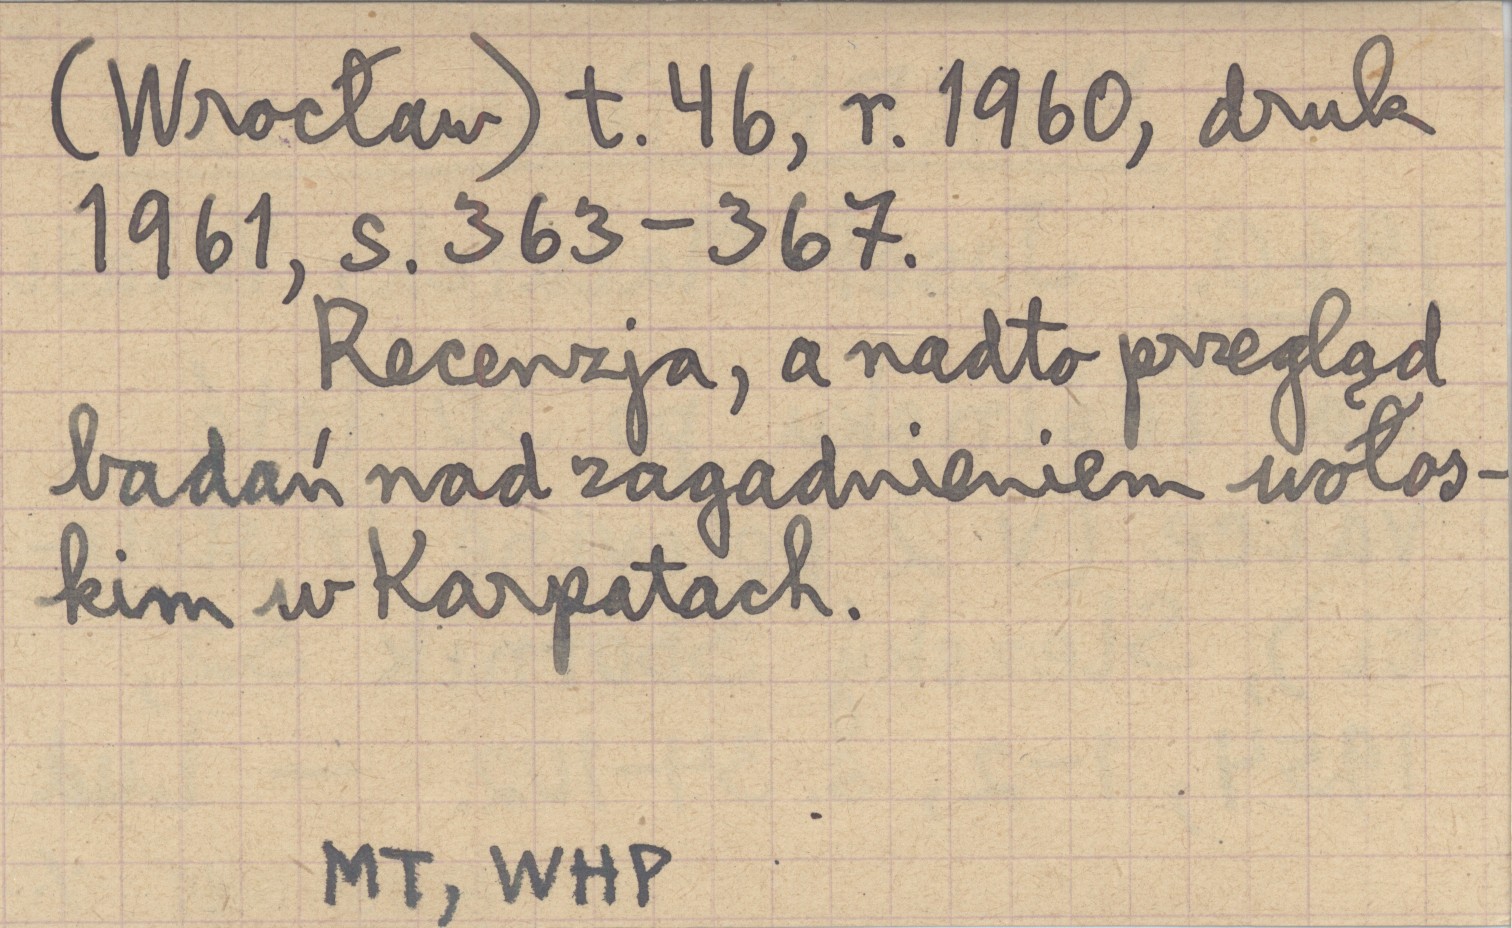 (Wrocław) t. 46, r. 1960, druk
1961, s. 363-367.
Recenzja, a nadto przegląd
badań nad zagadnieniem wołos-
kim w Karpatach.
MT, WHP